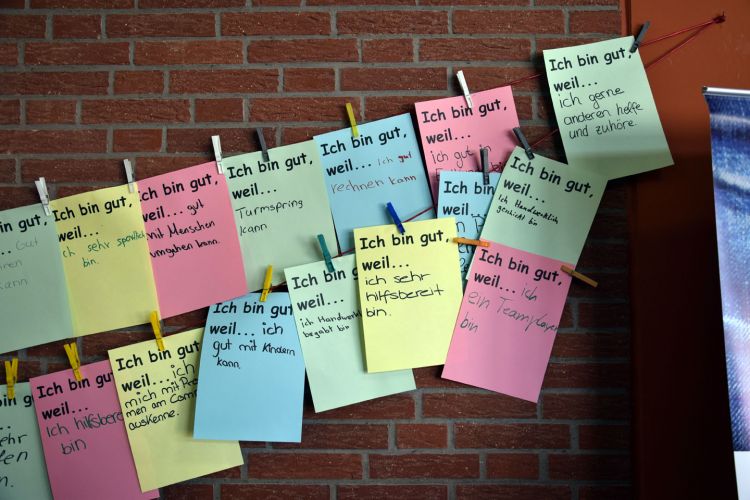 Gut
kann
Ich bin gut,
weil...
ich sehr sportlich
bin.
Ich bin gut,
weil... gut
mit Menschen
umgehen kann.
Ich bin gut,
weil...
Turmspring
kann
Ich bin gut,
weil... Ich gut
rechnen kann
Ich bin gut,
weil...
ich gut in
Ich bin gut,
weil...
Ich bin gut,
weil...
Ich Handwerklich
geschickt bin
Ich bin gut,
weil...
ich gerne
anderen helfe
und zuhöre.
bin
Ich bin gut,
weil...
Ich hilfsbereit
bin
Ich bin gut
weil... ich
mich mit Pro
men am Com
auskenne.
Ich bin gut,
weil... ich
gut mit Kindern
kann.
Ich bin gut,
weil...
ich Handwerkl
begabt bin
Ich bin gut,
weil...
ich sehr
hilfsbereit
bin.
Ich bin gut,
weil... ich
ein Teamplayer
bin